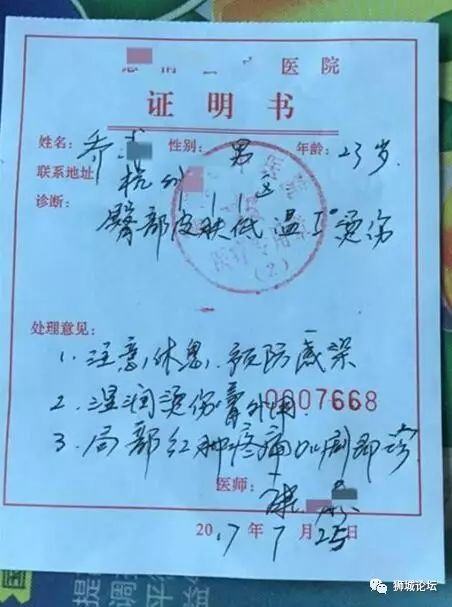 医院
证明书
姓名: 乔 性别: 男 年龄: 23岁.
联系地址 杭州 区
诊断:
臀部皮肤低温I°烫伤
处理意见:
1. 注意休息, 预防感染
2. 湿润烫伤膏外用
0007668
3. 局部红肿疼痛加剧即诊
医师:
2017年7月25日
(2)
狮城论坛